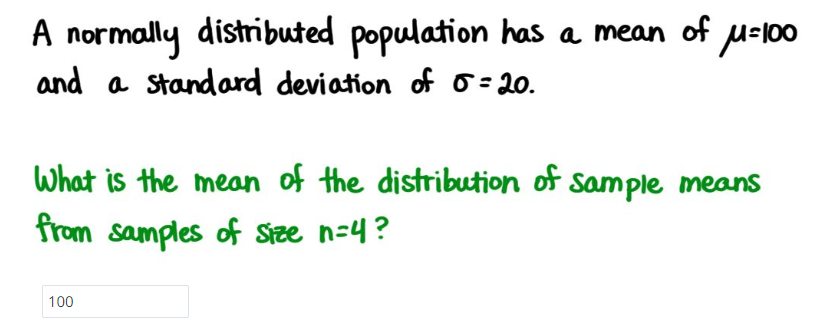 A normally distributed population has a mean of μ=100
and a standard deviation of σ=20.
What is the mean of the distribution of sample means
from samples of size n=4?
100